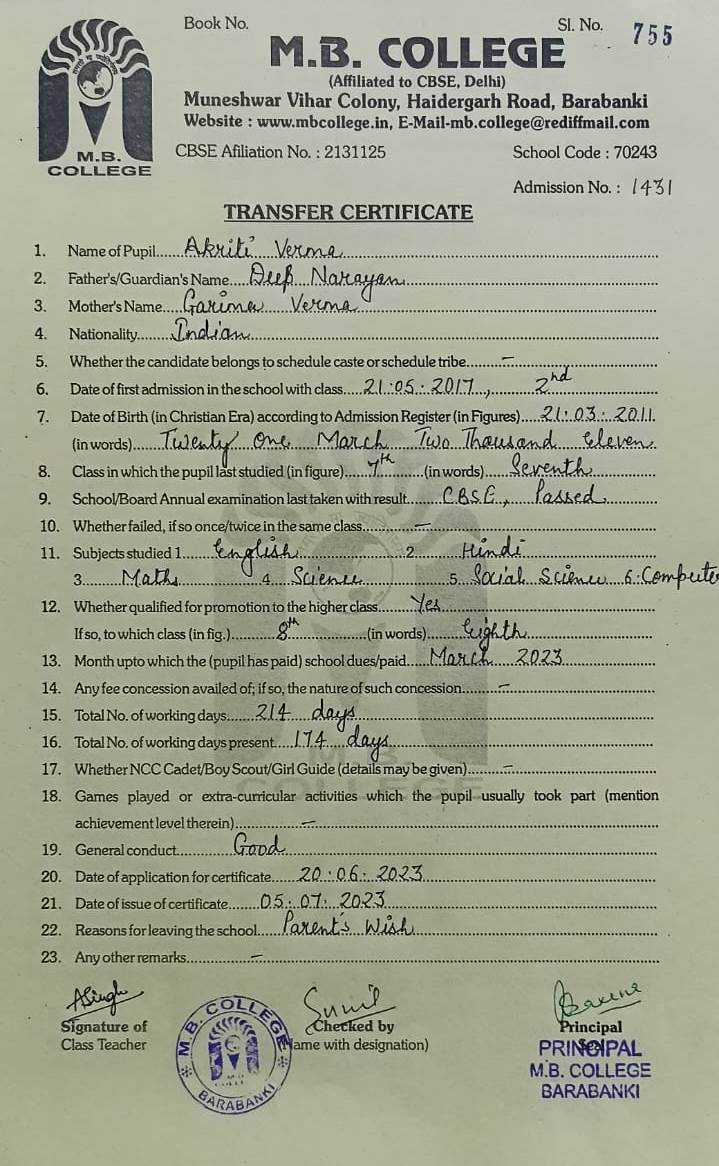 Book No.
Sl. No. 755
M.B. COLLEGE
(Affiliated to CBSE, Delhi)
Muneshwar Vihar Colony, Haidergarh Road, Barabanki
Website : www.mbcollege.in, E-Mail-mb.college@rediffmail.com
M.B.
COLLEGE
CBSE Afiliation No. : 2131125 School Code : 70243
Admission No. : 1431
TRANSFER CERTIFICATE
1. Name of Pupil Akriti Verma
2. Father's/Guardian's Name Deep Narayan
3. Mother's Name Garima Verma
4. Nationality Indian
5. Whether the candidate belongs to schedule caste or schedule tribe —
6. Date of first admission in the school with class 21.05.2017, 2nd
7. Date of Birth (in Christian Era) according to Admission Register (in Figures) 21.03.2011
(in words) Twenty One March Two Thousand Eleven
8. Class in which the pupil last studied (in figure) 7th (in words) Seventh
9. School/Board Annual examination last taken with result CBSE, Passed
10. Whether failed, if so once/twice in the same class —
11. Subjects studied 1 English 2 Hindi
3 Maths 4 Science 5 Social Science 6. Computer
12. Whether qualified for promotion to the higher class Yes
If so, to which class (in fig.) 8th (in words) Eighth
13. Month upto which the (pupil has paid) school dues/paid March 2023
14. Any fee concession availed of; if so, the nature of such concession —
15. Total No. of working days 214 days
16. Total No. of working days present 174 days
17. Whether NCC Cadet/Boy Scout/Girl Guide (details may be given) —
18. Games played or extra-curricular activities which the pupil usually took part (mention
achievement level therein) —
19. General conduct Good
20. Date of application for certificate 20.06.2023
21. Date of issue of certificate 05.07.2023
22. Reasons for leaving the school Parent's Wish
23. Any other remarks —
ASingh Sunil
Signature of Checked by Principal
Class Teacher (Name with designation)
PRINCIPAL
M.B. COLLEGE
BARABANKI
M.B. COLLEGE
BARABANKI